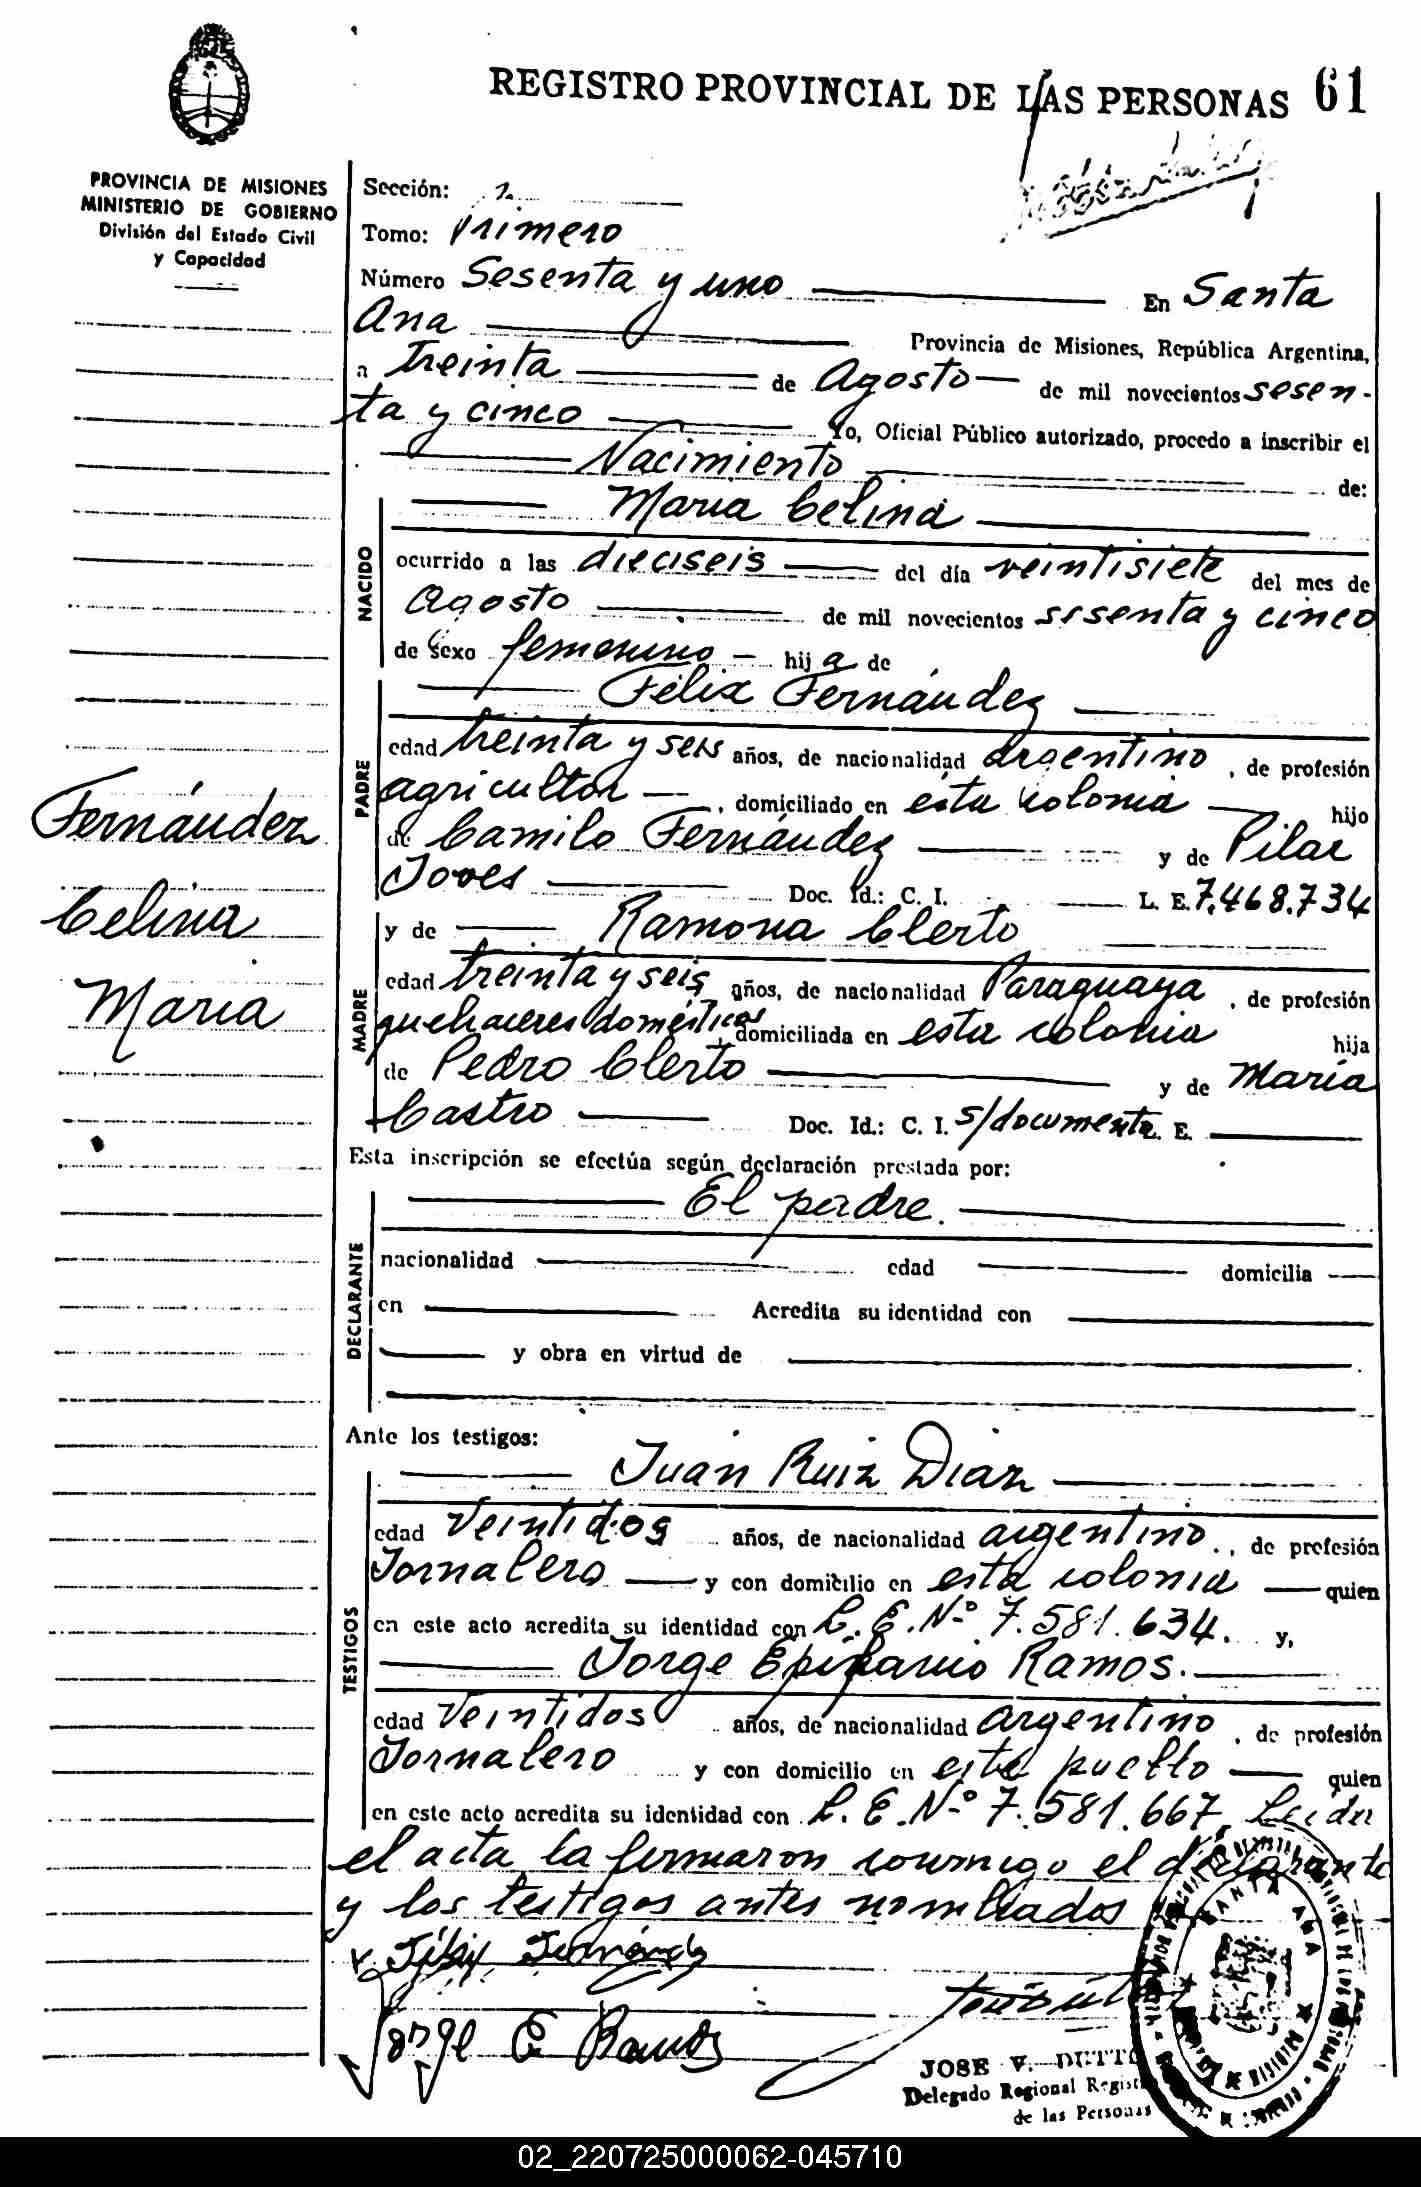 REGISTRO PROVINCIAL DE LAS PERSONAS 61
PROVINCIA DE MISIONES
MINISTERIO DE GOBIERNO
División del Estado Civil
y Capacidad
Sección:
Tomo: Primero
Número Sesenta y uno En Santa
Ana Provincia de Misiones, República Argentina,
a treinta de Agosto de mil novecientos sesen-
ta y cinco Yo, Oficial Público autorizado, procedo a inscribir el
Nacimiento de:
Maria Celina
NACIDO
ocurrido a las dieciseis del día veintisiete del mes de
Agosto de mil novecientos sesenta y cinco
de sexo femenino - hija de
Félix Fernández
PADRE
edad treinta y seis años, de nacionalidad argentino, de profesión
agricultor, domiciliado en esta colonia hijo
de Camilo Fernández y de Pilar
Joves Doc. Id.: C. I. L. E. 7.468.734
Fernández
Celina
Maria
y de Ramona Clerto
MADRE
edad treinta y seis años, de nacionalidad Paraguaya, de profesión
quehaceres domésticos, domiciliada en esta colonia hija
de Pedro Clerto y de María
Castro Doc. Id.: C. I. s/documento L. E.
Esta inscripción se efectúa según declaración prestada por:
El padre.
DECLARANTE
nacionalidad edad domicilia
en Acredita su identidad con
y obra en virtud de
Ante los testigos:
Juan Ruiz Diaz
TESTIGOS
edad Veintidos años, de nacionalidad argentino., de profesión
Jornalero y con domicilio en esta colonia quien
en este acto acredita su identidad con L. E. Nº 7.581.634. y,
Jorge Epifanio Ramos.
edad Veintidos años, de nacionalidad Argentino, de profesión
Jornalero y con domicilio en este pueblo quien
en este acto acredita su identidad con L. E. Nº 7.581.667. Leida
el acta, la firmaron conmigo el declarante
y los testigos antes nombrados
Félix Fernández
Jorge E Ramos
SANTA ANA
JOSE V. DUTTO
Delegado Regional Regist
de las Personas
02_220725000062-045710